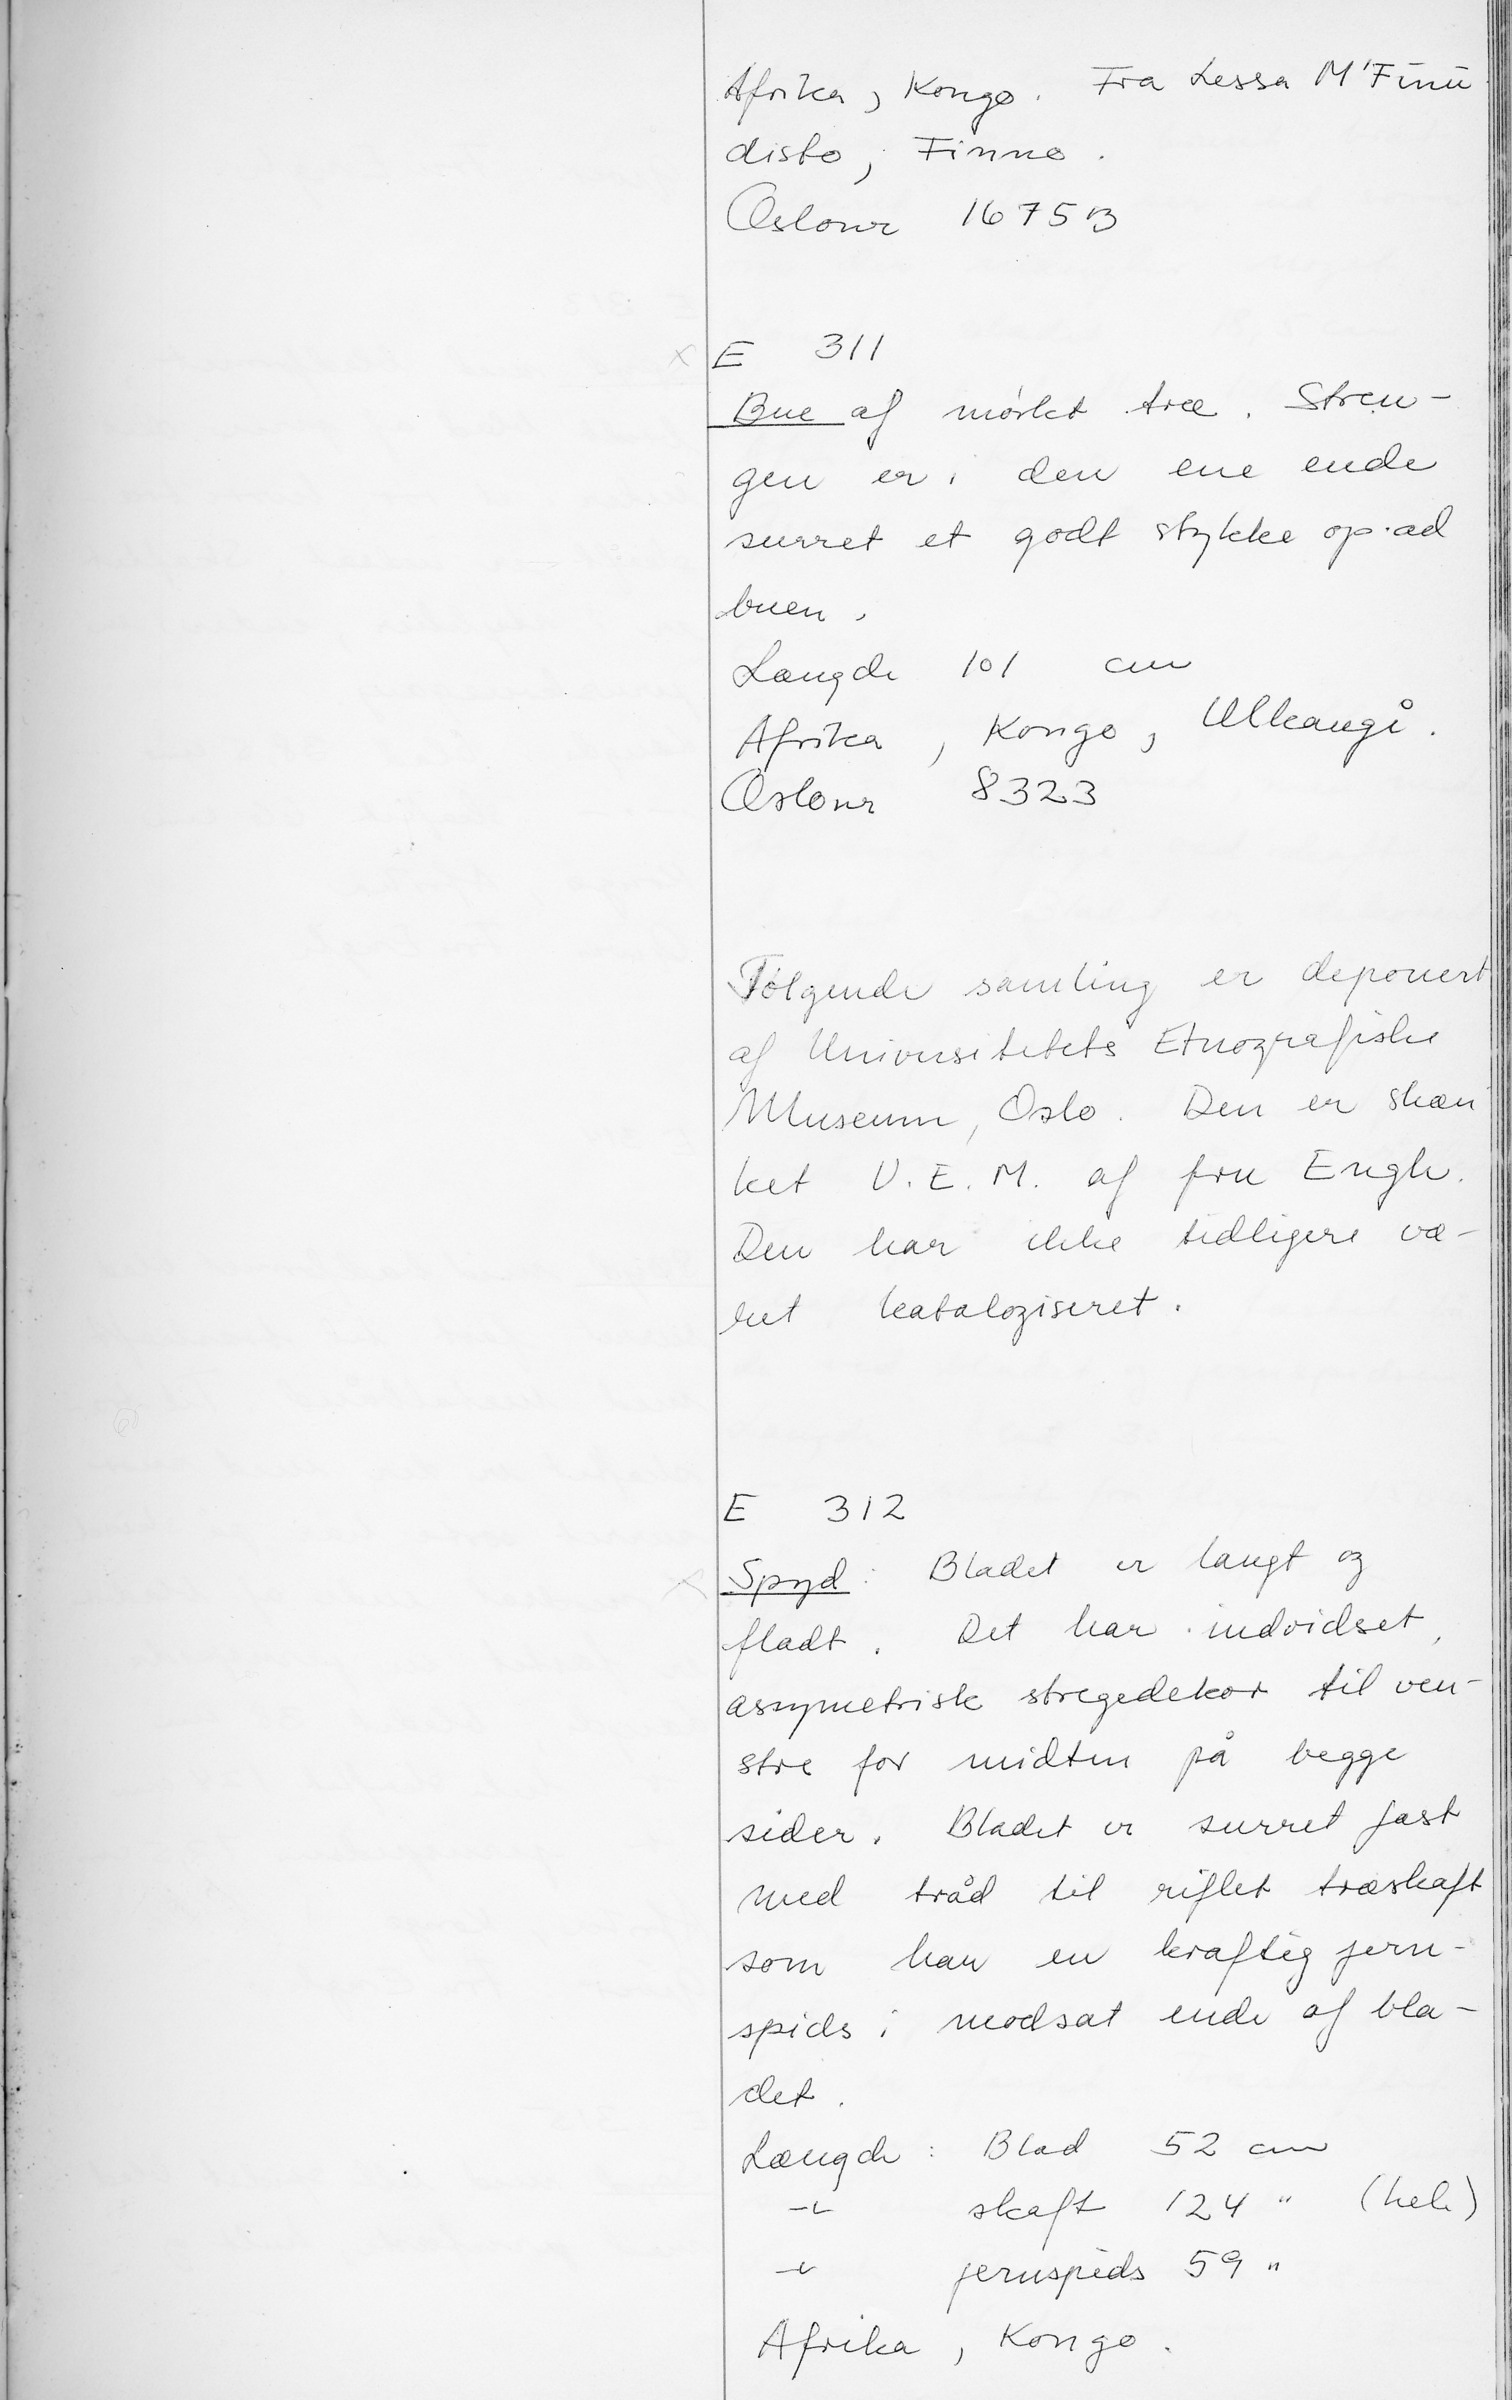 Afrika, Kongo. Fra Lessa M'Finu
disto, Finno.
Oslonr 1675 B
x E 311
Bue af mørket træ. Stren-
gen er i den ene ende
surret et godt stykke op ad
buen.
Længde 101 cm
Afrika, Kongo, Ulkangi.
Oslonr 8323
Følgende samling er deponert
af Universitetets Etnografiske
Museum, Oslo. Den er skæn
ket U.E.M. af fru Engh.
Den har ikke tidligere væ-
ret katalogiseret.
E 312
x Spyd: Bladet er langt og
fladt. Det har indvidset,
assymetrisk stregedekor til ven-
stre for midten på begge
sider. Bladet er surret fast
med tråd til riflet træskaft
som har en kraftig jern-
spids i modsat ende af bla-
det.
Længde: Blad 52 cm
-"- skaft 124 " (hele)
-"- jernspids 59 "
Afrika, Kongo.